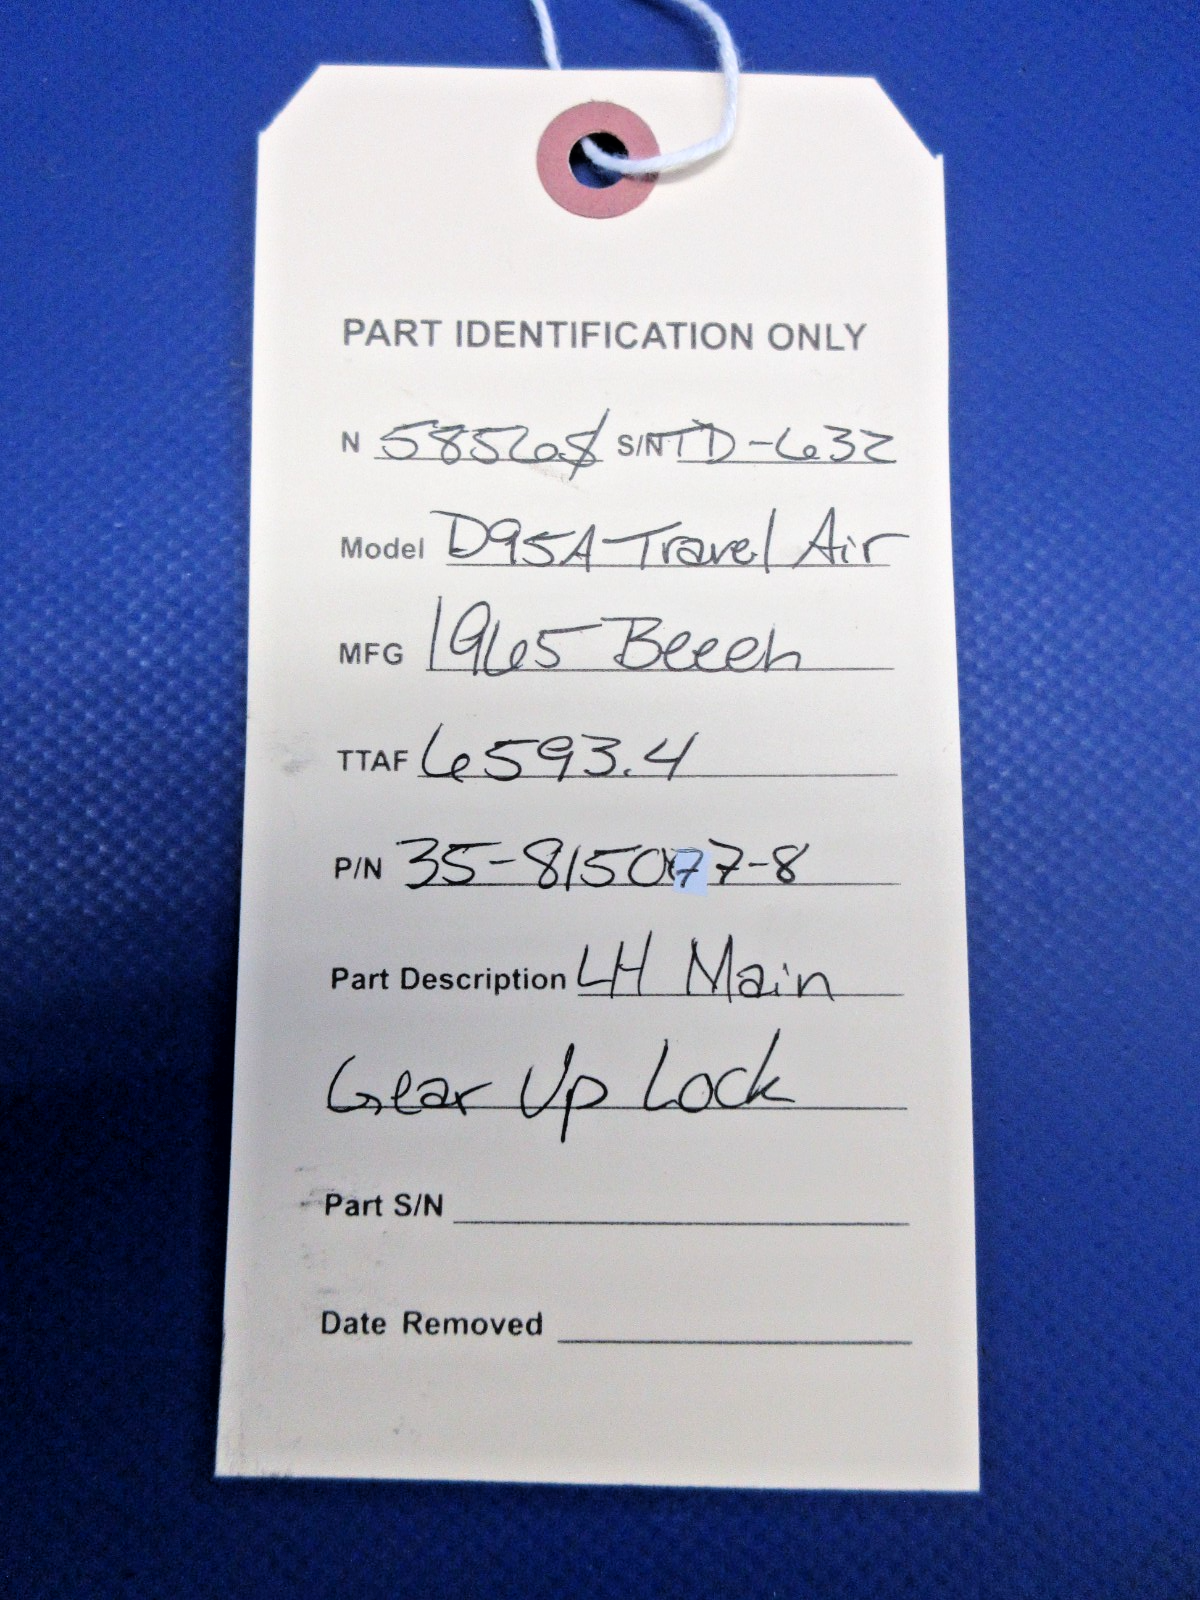 PART IDENTIFICATION ONLY
N 58565 S/N TD-632
Model D95A Travel Air
MFG 1965 Beech
TTAF 6593.4
P/N 35-815077-8
Part Description LH Main
Gear Up Lock
Part S/N
Date Removed